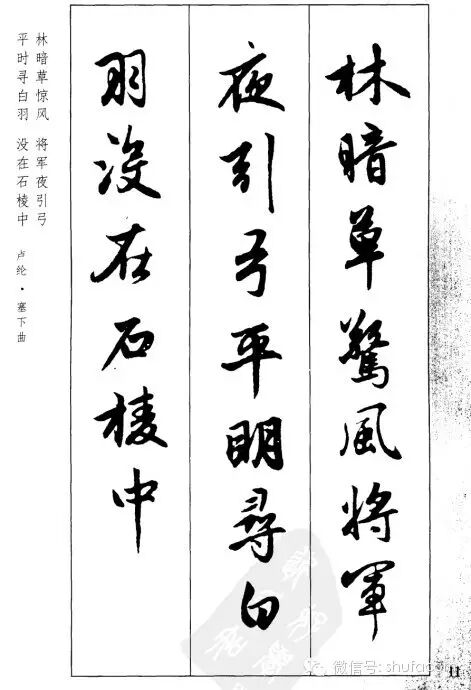 林暗草驚風將軍
夜引弓平明尋白
羽没在石棱中
林暗草惊风 将军夜引弓
平时寻白羽 没在石棱中
卢纶·塞下曲
微信号: shufa
11